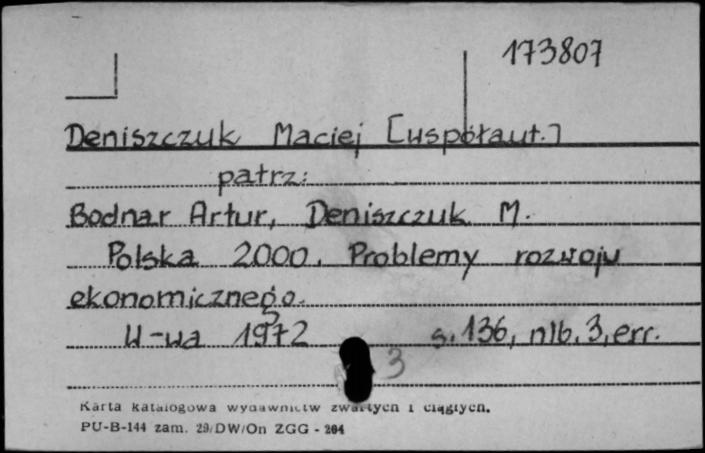 173807
Deniszczuk Maciej [współaut.]
patrz:
Bodnar Artur, Deniszczuk M.
Polska 2000. Problemy rozwoju
ekonomicznego.
W-wa 1972 s. 136, nlb. 3, err.
3
Karta katalogowa wydawnictw zwartych i ciągłych.
PU-B-144 zam. 29/DW/On ZGG - 204